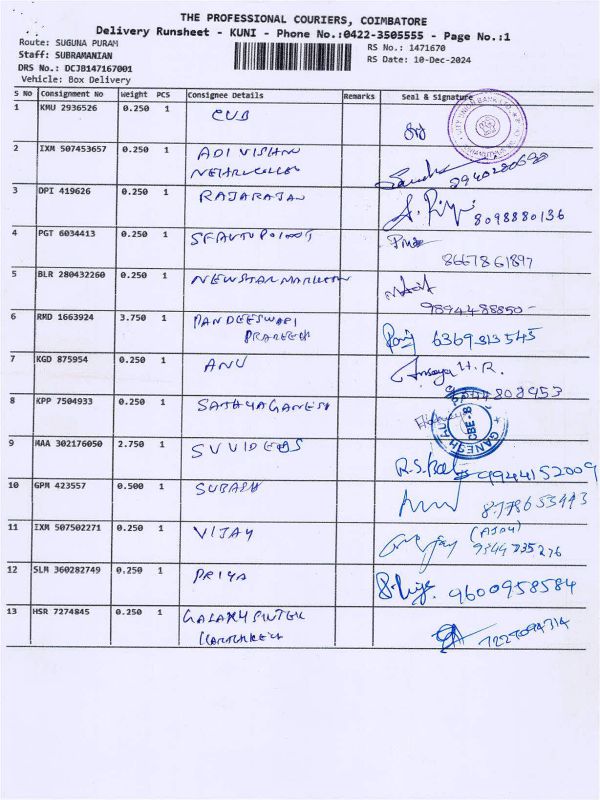 THE PROFESSIONAL COURIERS, COIMBATORE
Delivery Runsheet - KUNI - Phone No.:0422-3505555 - Page No.:1
Route: SUGUNA PURAM
RS No.: 1471670
Staff: SUBRAMANIAN
RS Date: 10-Dec-2024
DRS No.: DCJB147167001
Vehicle: Box Delivery
S No Consignment No Weight PCS Consignee Details Remarks Seal & Signature
1 KMU 2936526 0.250 1 CUB
CITY UNION BANK LTD.
2 IXM 507453657 0.250 1 ADI VISHNU
NEHRU COLLEG
3 DPI 419626 0.250 1 RAJARAJAN
8098880136
4 PGT 6034413 0.250 1
8667861897
5 BLR 280432260 0.250 1 NEWSTAR MARKETIN
9894488850
6 RMD 1663924 3.750 1 PANDEESWARI
PRADEESH
6369313545
7 KGD 875954 0.250 1 ANU
8 KPP 7504933 0.250 1 SATHYAGANESH
GANESH CBE-8
9 MAA 302176050 2.750 1 SV VIDEOS
9944152009
10 GPM 423557 0.500 1 SUBASH
11 IXM 507502271 0.250 1 VIJAY
(AJAY)
9344735276
12 SLM 360282749 0.250 1 PRIYA
9600958584
13 HSR 7274845 0.250 1 GALAXY